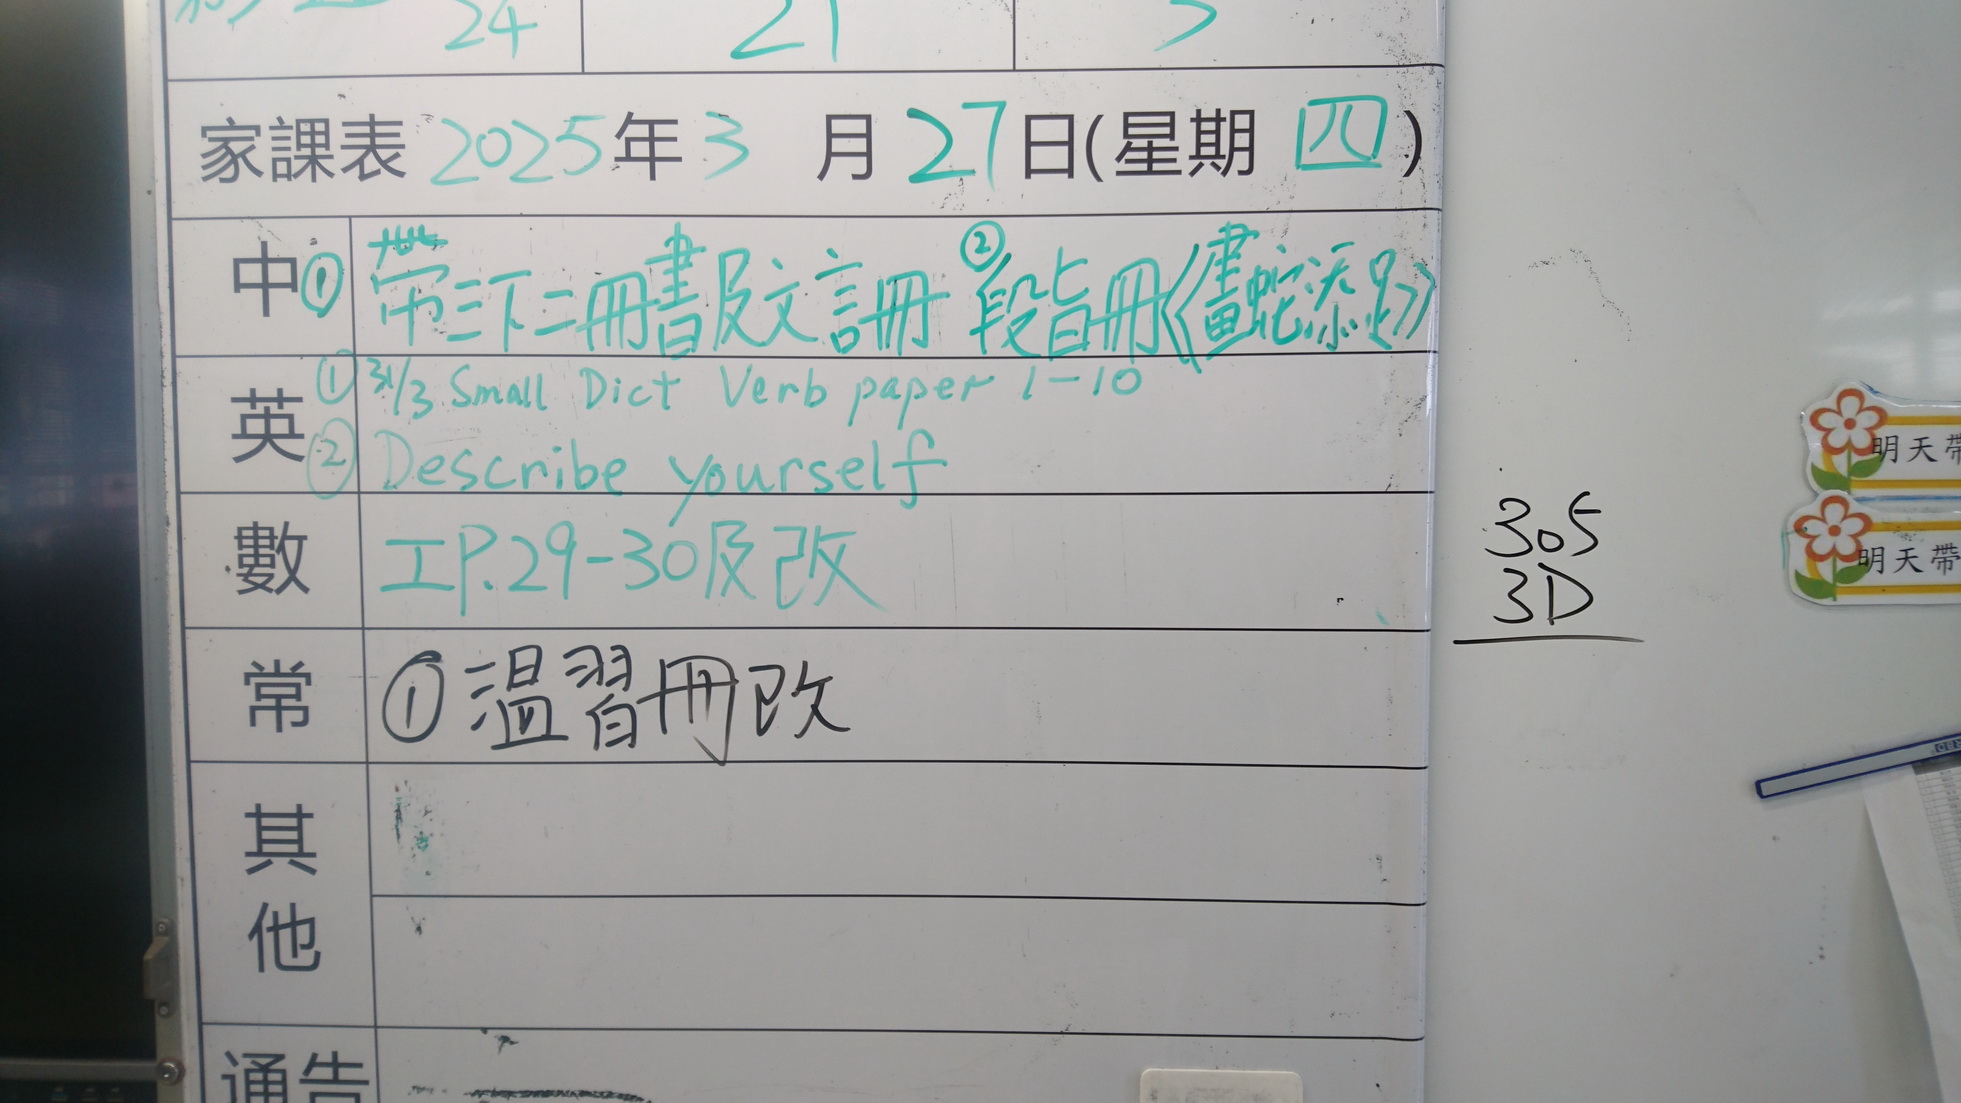 24 21
家課表 2025年3月27日(星期四)
中 ① 帶三下二冊書及文言冊 ② 段旨冊《畫蛇添足》
英 ① 31/3 Small Dict Verb paper 1-10
② Describe yourself
數 工P.29-30及改
常 ① 溫習冊改
其他
通告
305
3D
明天帶
明天帶